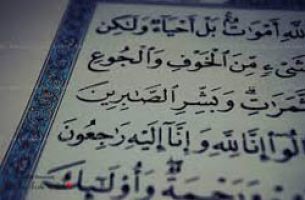 اللَّهِ أَمْوَاتٌ ۚ بَلْ أَحْيَاءٌ وَلَٰكِن
بِشَىْءٍ مِّنَ ٱلْخَوْفِ وَٱلْجُوعِ
ٱلثَّمَرَٰتِ ۗ وَبَشِّرِ ٱلصَّٰبِرِينَ
قَالُوٓا۟ إِنَّا لِلَّهِ وَإِنَّآ إِلَيْهِ رَٰجِعُونَ
وَرَحْمَةٌ ۖ وَأُو۟لَٰٓئِكَ